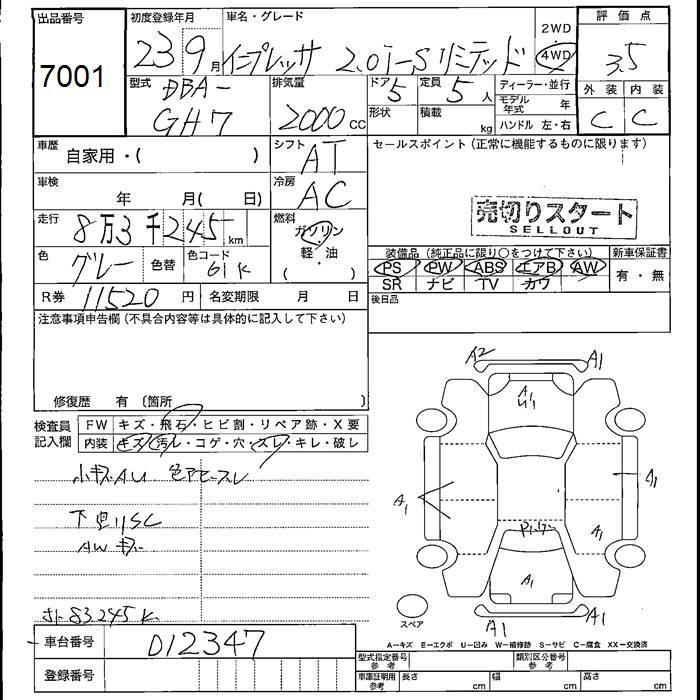 出品番号
7001
初度登録年月
23 9月
車名・グレード
インプレッサ 2.0i-Sリミテッド
2WD
・
4WD
評価点
3.5
型式
DBA-
GH7
排気量
2000 CC
ドア
5
定員
5 人
形状
積載
kg
ディーラー・並行
モデル年式 年
ハンドル 左・右
外装 内装
C C
車歴
自家用・( )
シフト
AT
車検
年 月( 日)
冷房
AC
走行
8万3千245 km
燃料
ガソリン
・
軽・油
( )
色
グレー
色替
色コード
61K
R券 11520 円
名変期限 月 日
セールスポイント (正常に機能するものに限ります)
売切りスタート
SELLOUT
装備品 (純正品に限り○をつけて下さい)
PS PW ABS エアB AW
SR ナビ TV カワ
新車保証書
有・無
後日品
注意事項申告欄 (不具合内容等は具体的に記入して下さい)
修復歴 有 (箇所 )
検査員記入欄
FW キズ・飛石・ヒビ割・リペア跡・X要
内装 キズ・汚レ・コゲ・穴・スレ・キレ・破レ
小キズAU 色アセ・スレ
下廻りSC
AWキズ
83245K
A2
A1
A1
U1
A1
A1
A1
A1
A1
A1
スペア
A-キズ E-エクボ U-凹み W-補修跡 S-サビ C-腐食 XX-交換済
車台番号
012347
登録番号
型式指定番号
参考
類別区分番号
参考
車庫証明用
参考
長さ cm
幅 cm
高さ cm